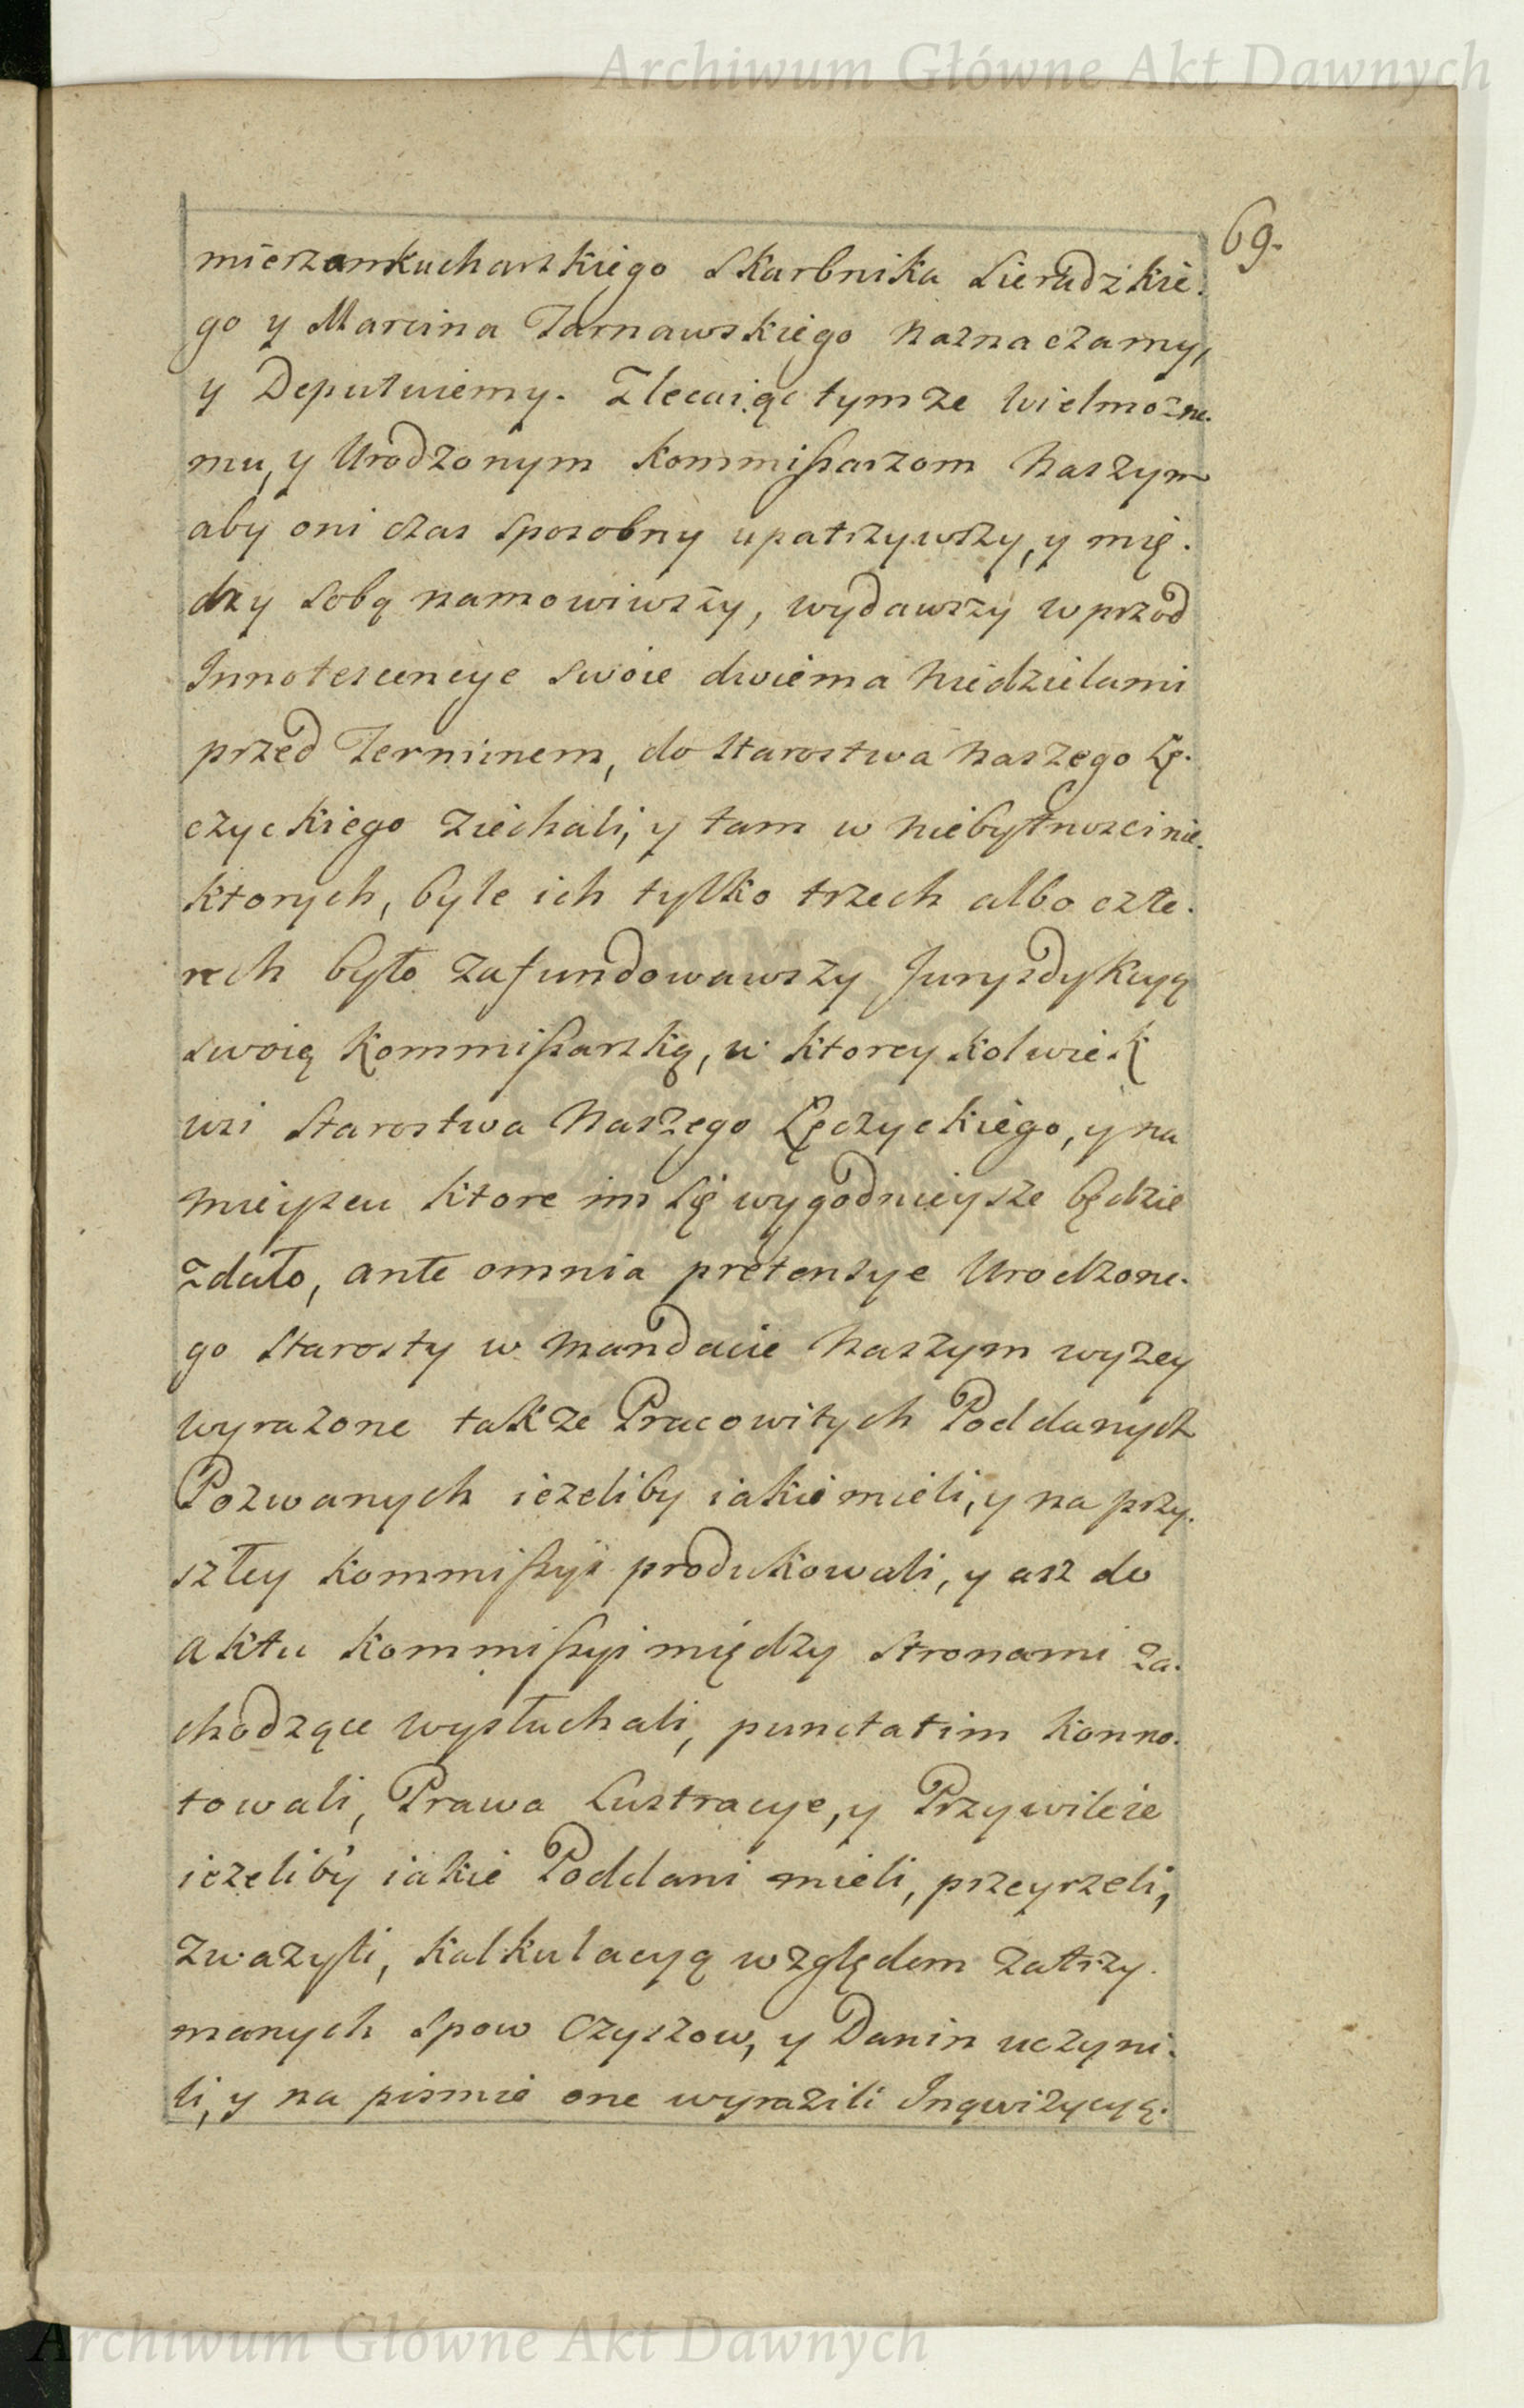 Archiwum Główne Akt Dawnych
69.
mierza Kucharskiego Skarbnika Sieradzkie.
go y Marcina Tarnawskiego naznaczamy,
y Deputuiemy. Zlecaiąc tymze Wielmożne.
mu, y Urodzonym Kommißarzom Naszym
aby oni czas sposobny upatrzywszy, y mię.
dzy sobą namowiwszy, wydawszy wprzod
Innotescencye swoie dwiema Niedzielami
przed Terminem, do Starostwa Naszego Łę.
czyckiego ziechali, y tam w niebytnosci nie.
ktorych, byle ich tylko trzech albo czte.
rech było zafundowawszy Jurysdykcyą
swoią Kommißarską, w ktorey kolwiek
wsi Starostwa Naszego Łęczyckiego, y na
mieyscu ktore im się wygodnieysze będzie
zdało, ante omnia pretensye Urodzone.
go Starosty w mandacie Naszym wyzey
wyrazone takze Pracowitych Poddanych
Pozwanych iezeliby iakie mieli, y na przy.
szłey Kommißyi produkowali, y asz do
aktu Kommißyi między Stronami za.
chodzące wysłuchali, punctatim konno.
towali, Prawa Lustracye, y Przywileie
iezeliby iakie Poddani mieli, przeyrzeli,
zwazyli, Kalkulacyą względem zatrzy.
manych Spow Czyszow, y Danin uczyni.
li, y na pismie one wyrazili Inqwizycyą.
Archiwum Główne Akt Dawnych